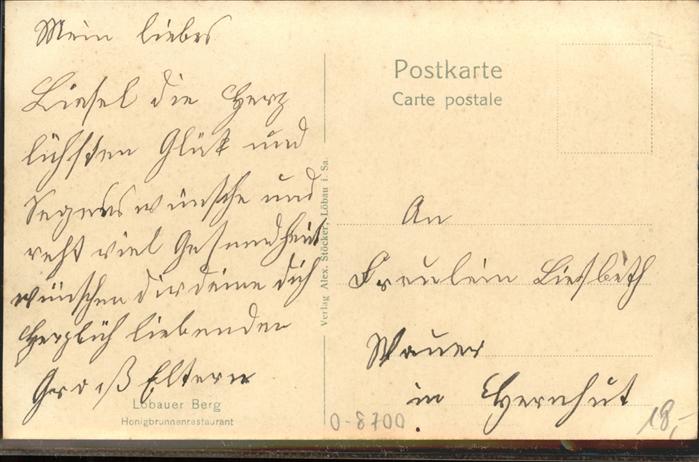 Mein liebes
Liesel die Herz
lichsten Glük und
Segenswünsche und
reht viel Gesundheit
wünschen dir deine dich
Herzlich liebenden
Groß Eltern
Löbauer Berg
Honigbrunnenrestaurant
Verlag Alex. Stöcker, Löbau i. Sa.
Postkarte
Carte postale
An
Fräulein Liesbeth
Wauer
in Hernhut
0-8700
18,-